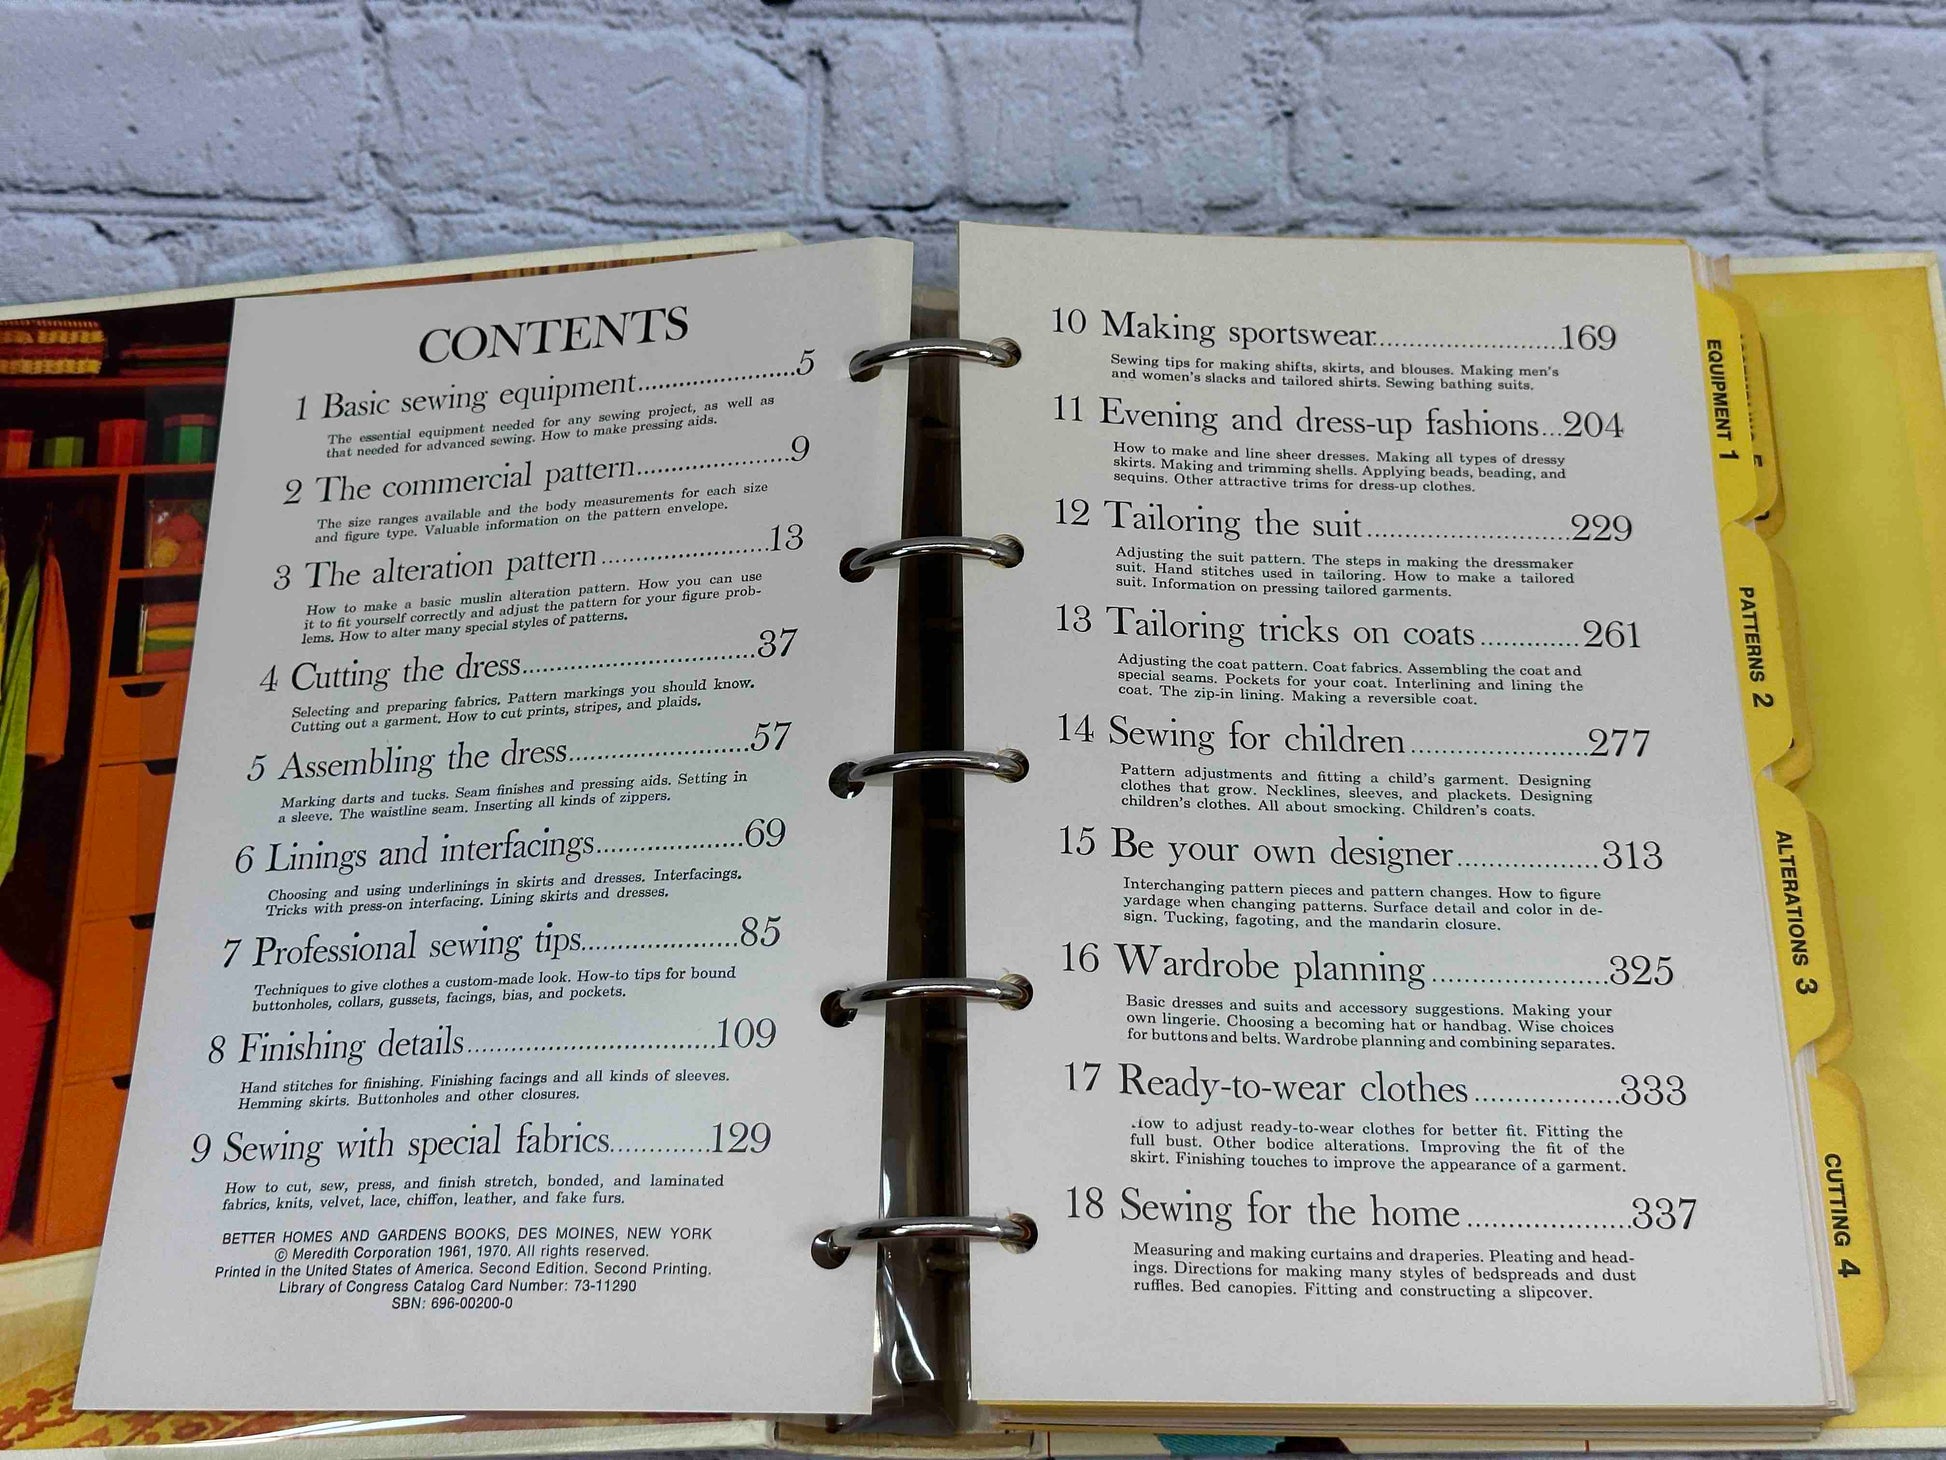 CONTENTS
1 Basic sewing equipment......................5
The essential equipment needed for any sewing project, as well as
that needed for advanced sewing. How to make pressing aids.
2 The commercial pattern.....................9
The size ranges available and the body measurements for each size
and figure type. Valuable information on the pattern envelope.
3 The alteration pattern.......................13
How to make a basic muslin alteration pattern. How you can use
it to fit yourself correctly and adjust the pattern for your figure prob-
lems. How to alter many special styles of patterns.
4 Cutting the dress................................37
Selecting and preparing fabrics. Pattern markings you should know.
Cutting out a garment. How to cut prints, stripes, and plaids.
5 Assembling the dress.........................57
Marking darts and tucks. Seam finishes and pressing aids. Setting in
a sleeve. The waistline seam. Inserting all kinds of zippers.
6 Linings and interfacings....................69
Choosing and using underlinings in skirts and dresses. Interfacings.
Tricks with press-on interfacing. Lining skirts and dresses.
7 Professional sewing tips.....................85
Techniques to give clothes a custom-made look. How-to tips for bound
buttonholes, collars, gussets, facings, bias, and pockets.
8 Finishing details..................................109
Hand stitches for finishing. Finishing facings and all kinds of sleeves.
Hemming skirts. Buttonholes and other closures.
9 Sewing with special fabrics.............129
How to cut, sew, press, and finish stretch, bonded, and laminated
fabrics, knits, velvet, lace, chiffon, leather, and fake furs.
BETTER HOMES AND GARDENS BOOKS, DES MOINES, NEW YORK
© Meredith Corporation 1961, 1970. All rights reserved.
Printed in the United States of America. Second Edition. Second Printing.
Library of Congress Catalog Card Number: 73-11290
SBN: 696-00200-0
10 Making sportswear.........................169
Sewing tips for making shifts, skirts, and blouses. Making men's
and women's slacks and tailored shirts. Sewing bathing suits.
11 Evening and dress-up fashions...204
How to make and line sheer dresses. Making all types of dressy
skirts. Making and trimming shells. Applying beads, beading, and
sequins. Other attractive trims for dress-up clothes.
12 Tailoring the suit...........................229
Adjusting the suit pattern. The steps in making the dressmaker
suit. Hand stitches used in tailoring. How to make a tailored
suit. Information on pressing tailored garments.
13 Tailoring tricks on coats.............261
Adjusting the coat pattern. Coat fabrics. Assembling the coat and
special seams. Pockets for your coat. Interlining and lining the
coat. The zip-in lining. Making a reversible coat.
14 Sewing for children.......................277
Pattern adjustments and fitting a child's garment. Designing
clothes that grow. Necklines, sleeves, and plackets. Designing
children's clothes. All about smocking. Children's coats.
15 Be your own designer..................313
Interchanging pattern pieces and pattern changes. How to figure
yardage when changing patterns. Surface detail and color in de-
sign. Tucking, fagoting, and the mandarin closure.
16 Wardrobe planning.......................325
Basic dresses and suits and accessory suggestions. Making your
own lingerie. Choosing a becoming hat or handbag. Wise choices
for buttons and belts. Wardrobe planning and combining separates.
17 Ready-to-wear clothes...................333
How to adjust ready-to-wear clothes for better fit. Fitting the
full bust. Other bodice alterations. Improving the fit of the
skirt. Finishing touches to improve the appearance of a garment.
18 Sewing for the home.....................337
Measuring and making curtains and draperies. Pleating and head-
ings. Directions for making many styles of bedspreads and dust
ruffles. Bed canopies. Fitting and constructing a slipcover.
EQUIPMENT 1
PATTERNS 2
ALTERATIONS 3
CUTTING 4